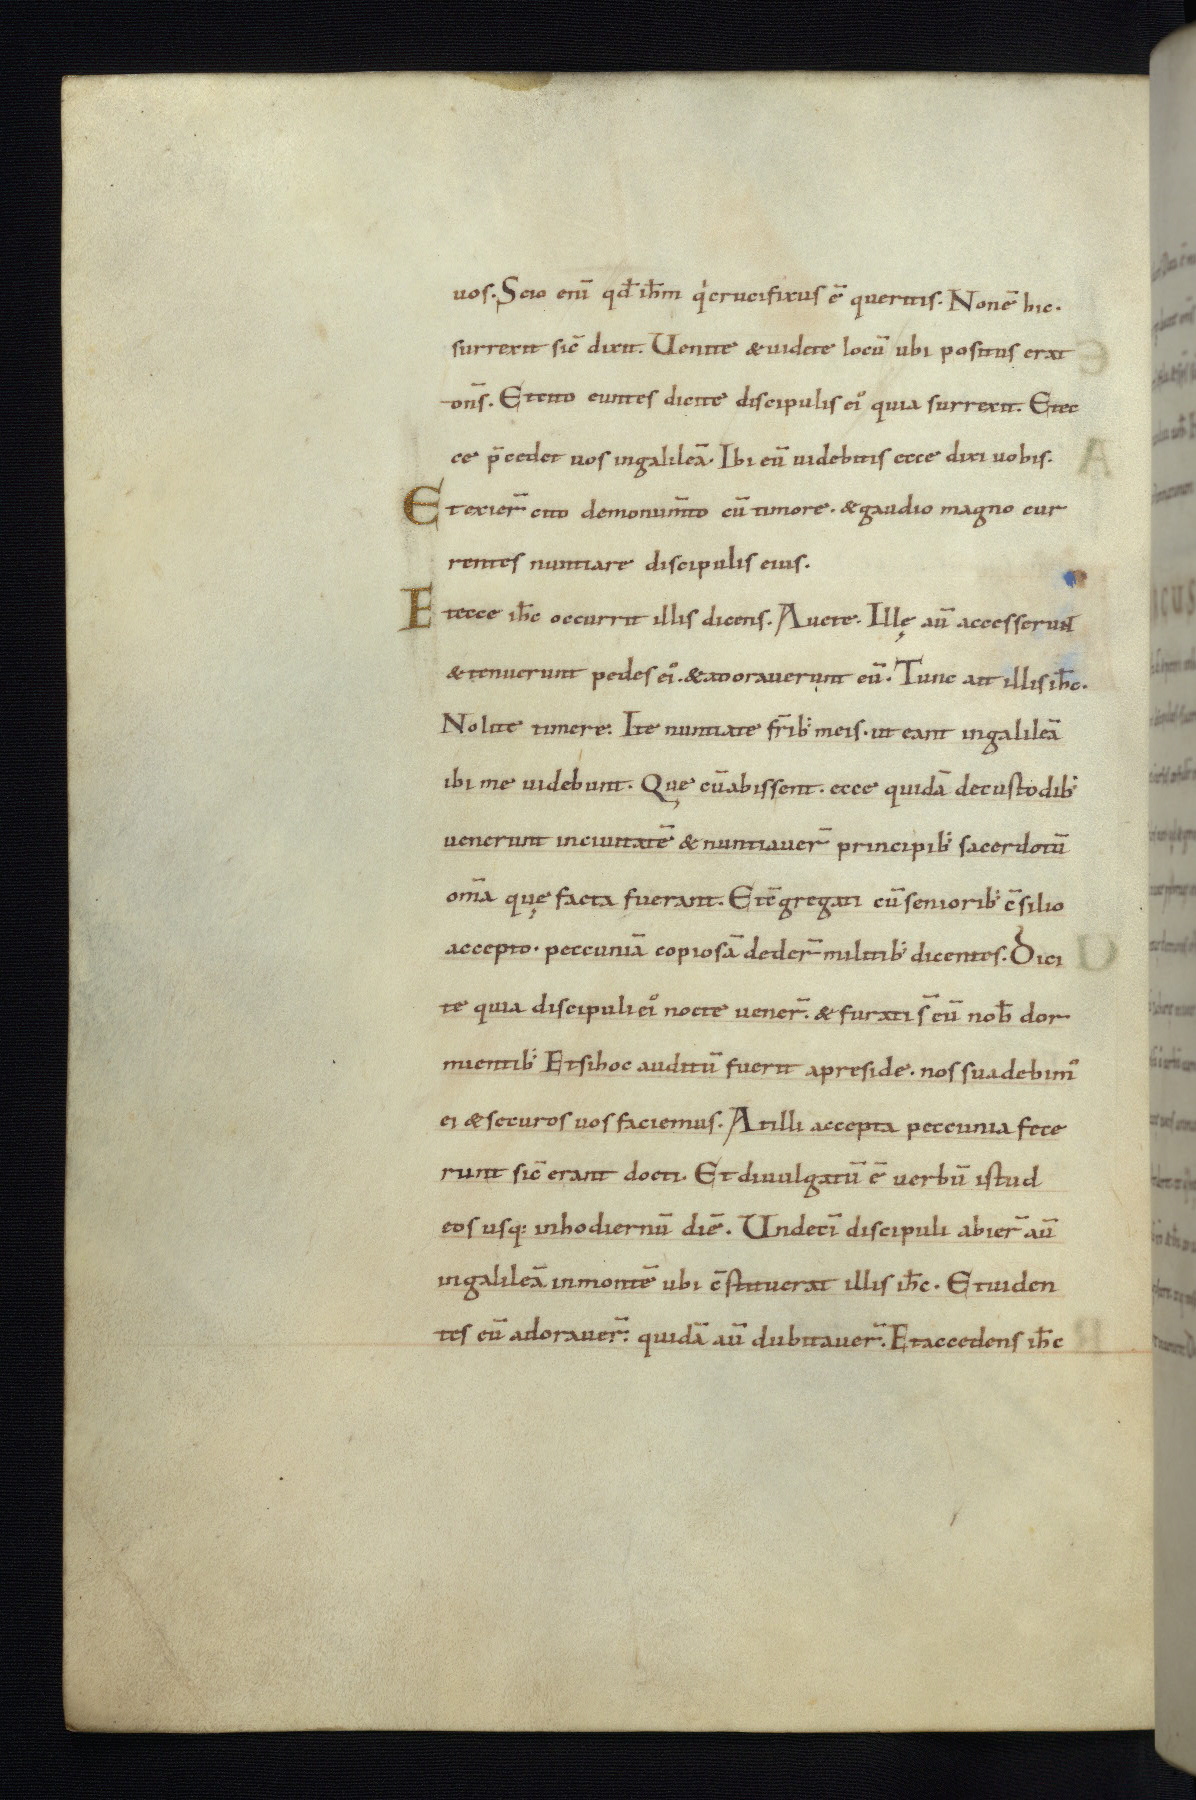 uos. Scio enī qđ ihm̄ qi crucifixus ē queritis. Non ē hic.
surrexit sic̄ dixit. Uenite & uidete locū ubi positus erat
dn̄s. Et cito euntes dicite discipulis ei᷒ quia surrexit. Et ec
ce p̄cedet uos in galileā. Ibi eū uidebitis ecce dixi uobis.
Et exier̄ cito de monum̄to cū timore. & gaudio magno cur
rentes nuntiare discipulis eius.
Et ecce ih̄c occurrit illis dicens. Auete. Illę aū accesserunt
& tenuerunt pedes ei᷒. & adorauerunt eū. Tunc ait illis ih̄c.
Nolite timere. Ite nuntiate fr̄ib; meis. ut eant in galileā
ibi me uidebunt. Quę cū abissent. ecce quidā de custodib;
uenerunt in ciuitatē & nuntiauer̄ principib; sacerdotū
om̄a quę facta fuerant. Et c̄gregati cū seniorib; c̄silio
accepto. peccuniā copiosā deder̄ militib; dicentes. Dici
te quia discipuli ei᷒ nocte uener̄. & furati s̄ eū nob̄ dor
mientib; Et si hoc auditū fuerit a preside. nos suadebim᷒
ei & securos uos faciemus. At illi accepta peccunia fece
runt sic̄ erant docti. Et diuulgatū ē uerbū istud
eos usq; in hodiernū diē. Undecī discipuli abier̄ aū
in galileā in montē ubi c̄stituerat illis ih̄c. Et uiden
tes eū adorauer̄. quidā aū dubitauer̄. Et accedens ih̄c